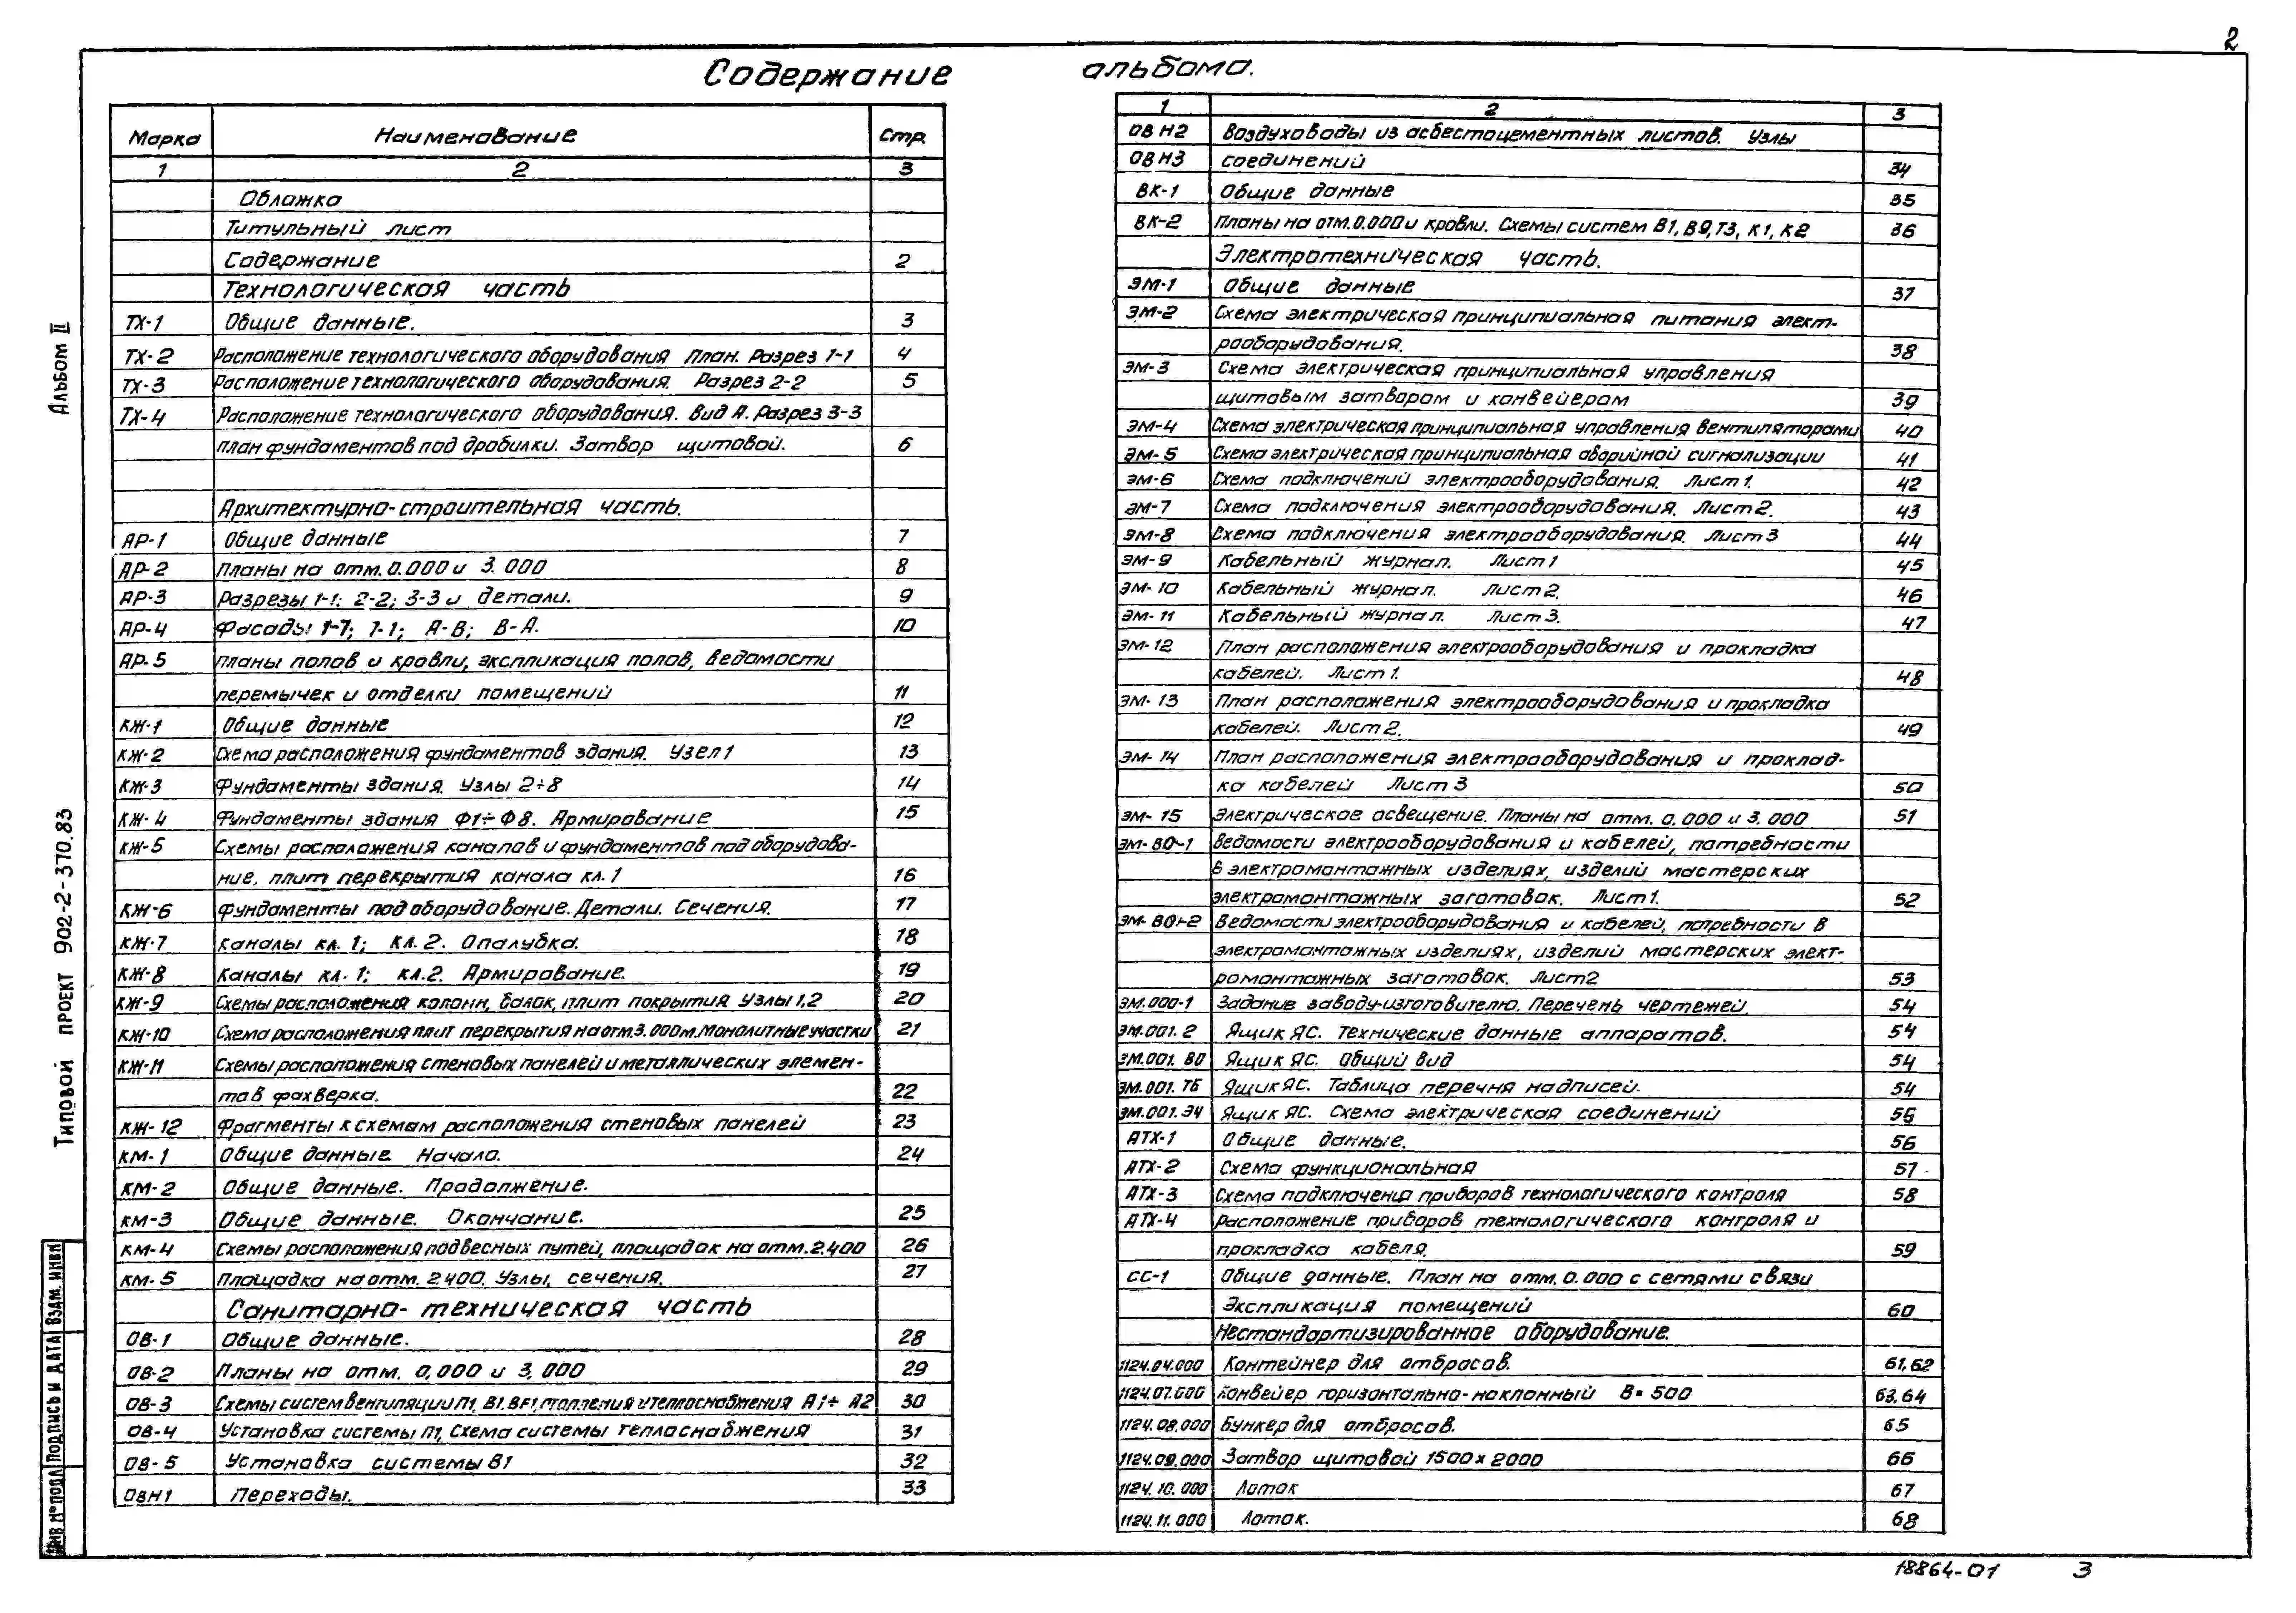 2
Содержание альбома.
Марка Наименование Стр.
1 2 3
Обложка
Титульный лист
Содержание 2
Технологическая часть
ТХ-1 Общие данные. 3
ТХ-2 Расположение технологического оборудования План. Разрез 1-1 4
ТХ-3 Расположение технологического оборудования. Разрез 2-2 5
ТХ-4 Расположение технологического оборудования. Вид А. Разрез 3-3
план фундаментов под дробилки. Затвор щитовой. 6
Архитектурно-строительная часть.
АР-1 Общие данные 7
АР-2 Планы на отм. 0.000 и 3.000 8
АР-3 Разрезы 1-1; 2-2; 3-3 и детали. 9
АР-4 Фасады 1-7; 7-1; А-В; В-А. 10
АР-5 Планы полов и кровли, экспликация полов, ведомости
перемычек и отделки помещений 11
КЖ-1 Общие данные 12
КЖ-2 Схема расположения фундаментов здания. Узел 1 13
КЖ-3 Фундаменты здания. Узлы 2÷8 14
КЖ-4 Фундаменты здания Ф1÷Ф8. Армирование 15
КЖ-5 Схемы расположения каналов и фундаментов под оборудова-
ние, плит перекрытия канала кл.1 16
КЖ-6 Фундаменты под оборудование. Детали. Сечения. 17
КЖ-7 Каналы кл. 1; кл. 2. Опалубка. 18
КЖ-8 Каналы кл. 1; кл. 2. Армирование. 19
КЖ-9 Схемы расположения колонн, балок, плит покрытия Узлы 1,2 20
КЖ-10 Схема расположения плит перекрытия на отм.3.000м. Монолитные участки 21
КЖ-11 Схемы расположения стеновых панелей и металлических элемен-
тов фахверка. 22
КЖ-12 Фрагменты к схемам расположения стеновых панелей 23
КМ-1 Общие данные. Начало. 24
КМ-2 Общие данные. Продолжение.
КМ-3 Общие данные. Окончание. 25
КМ-4 Схемы расположения подвесных путей, площадок на отм. 2.400 26
КМ-5 Площадка на отм. 2.400. Узлы, сечения. 27
Санитарно-техническая часть
ОВ-1 Общие данные. 28
ОВ-2 Планы на отм. 0,000 и 3,000 29
ОВ-3 Схемы систем вентиляции П1, В1. ВЕ1, отопления и теплоснабжения А1÷А2 30
ОВ-4 Установка системы П1, Схема системы теплоснабжения 31
ОВ-5 Установка системы В1 32
ОВН1 Переходы. 33
1 2 3
ОВН2 Воздуховоды из асбестоцементных листов. Узлы
ОВН3 соединений 34
ВК-1 Общие данные 35
ВК-2 Планы на отм.0.000 и кровли. Схемы систем В1, В9, Т3, К1, К2 36
Электротехническая часть.
ЭМ-1 Общие данные 37
ЭМ-2 Схема электрическая принципиальная питания элект-
рооборудования. 38
ЭМ-3 Схема электрическая принципиальная управления
щитовым затвором и конвейером 39
ЭМ-4 Схема электрическая принципиальная управления вентиляторами 40
ЭМ-5 Схема электрическая принципиальная аварийной сигнализации 41
ЭМ-6 Схема подключений электрооборудования. Лист 1. 42
ЭМ-7 Схема подключения электрооборудования. Лист 2. 43
ЭМ-8 Схема подключения электрооборудования. Лист 3 44
ЭМ-9 Кабельный журнал. Лист 1 45
ЭМ-10 Кабельный журнал. Лист 2. 46
ЭМ-11 Кабельный журнал. Лист 3. 47
ЭМ-12 План расположения электрооборудования и прокладка
кабелей. Лист 1. 48
ЭМ-13 План расположения электрооборудования и прокладка
кабелей. Лист 2. 49
ЭМ-14 План расположения электрооборудования и проклад-
ка кабелей Лист 3 50
ЭМ-15 Электрическое освещение. Планы на отм. 0.000 и 3.000 51
ЭМ-ВО-1 Ведомости электрооборудования и кабелей, потребности
в электромонтажных изделиях, изделий мастерских
электромонтажных заготовок. Лист 1. 52
ЭМ-ВО-2 Ведомости электрооборудования и кабелей, потребности в
электромонтажных изделиях, изделий мастерских элект-
ромонтажных заготовок. Лист 2 53
ЭМ.000-1 Задание заводу-изготовителю. Перечень чертежей. 54
ЭМ.001.2 Ящик ЯС. Технические данные аппаратов. 54
ЭМ.001.ВО Ящик ЯС. Общий вид 54
ЭМ.001.ТБ Ящик ЯС. Таблица перечня надписей. 54
ЭМ.001.Э4 Ящик ЯС. Схема электрическая соединений 55
АТХ-1 Общие данные. 56
АТХ-2 Схема функциональная 57
АТХ-3 Схема подключения приборов технологического контроля 58
АТХ-4 Расположение приборов технологического контроля и
прокладка кабеля. 59
СС-1 Общие данные. План на отм. 0.000 с сетями связи
Экспликация помещений 60
Нестандартизированное оборудование.
1124.04.000 Контейнер для отбросов. 61,62
1124.07.000 Конвейер горизонтально-наклонный В=500 63,64
1124.08.000 Бункер для отбросов. 65
1124.09.000 Затвор щитовой 1500х2000 66
1124.10.000 Лоток 67
1124.11.000 Лоток. 68
Альбом II
Типовой проект 902-2-370.83
Взам. инв.№
Подпись и дата
Инв № подл
18864-01 3